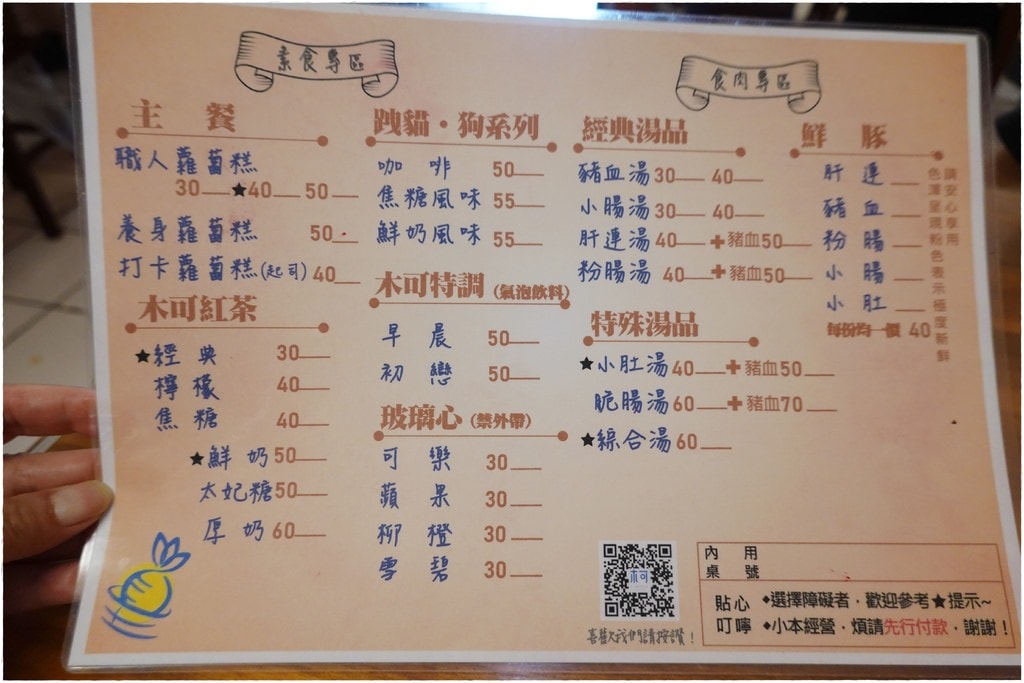 素食專區
主餐
職人蘿蔔糕
30 ★40 50
養身蘿蔔糕 50
打卡蘿蔔糕(起司) 40
木可紅茶
★經典 30
檸檬 40
焦糖 40
★鮮奶 50
太妃糖 50
厚奶 60
跩貓・狗系列
咖啡 50
焦糖風味 55
鮮奶風味 55
木可特調(氣泡飲料)
早晨 50
初戀 50
玻璃心(禁外帶)
可樂 30
蘋果 30
柳橙 30
雪碧 30
食肉專區
經典湯品
豬血湯 30 40
小腸湯 30 40
肝連湯 40 +豬血50
粉腸湯 40 +豬血50
特殊湯品
★小肚湯 40 +豬血50
脆腸湯 60 +豬血70
★綜合湯 60
鮮豚
肝連
豬血
粉腸
小腸
小肚
每份均一價 40
請安心享用
色澤呈現粉色表示極度新鮮
柯
喜歡我們請按讚！
內用
桌號
貼心 ◆選擇障礙者，歡迎參考★提示~
叮嚀 ◆小本經營，煩請先行付款，謝謝！